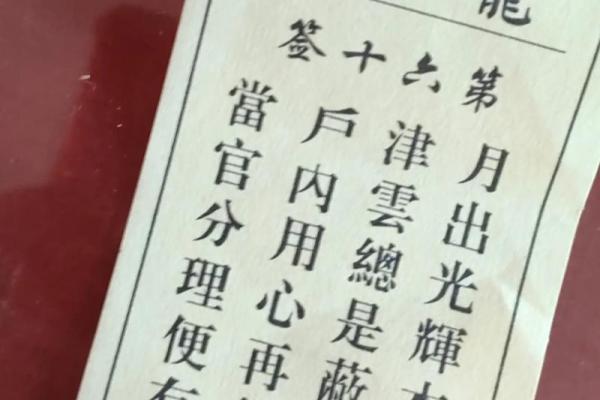 龍
第六十签
月出光輝
津雲總是蔽
戶內用心再
當官分理便